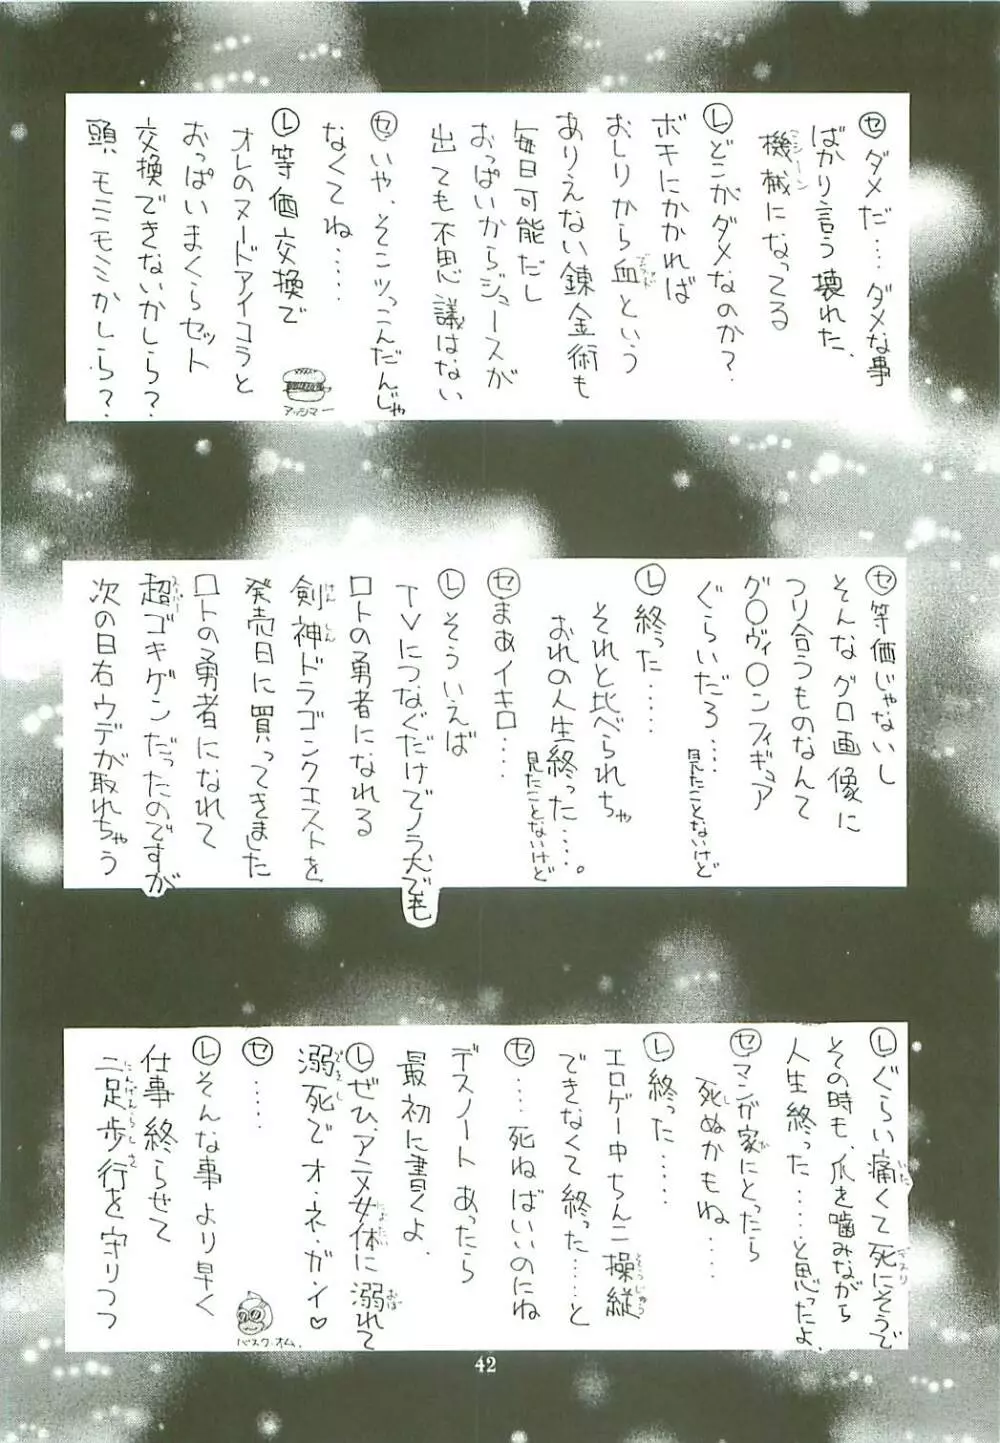 セ ダメだ‥‥ダメな事
ばかり言う壊れた、
機械になってる
マシーン
L どこがダメなのか?
ボキにかかれば
おしりから血という
ありえない錬金術も
毎日可能だし
おっぱいからジュースが
出ても不思議はない
セ いや、そこツっこんだんじゃ
なくてね‥‥
L 等価交換で
オレのヌードアイコラと
おっぱいまくらセット
交換できないかしら?
頭、モミモミかしら?
アッシマー
セ 等価じゃないし
そんなグロ画像に
つり合うものなんて
グ〇ヴィ〇ンフィギュア
ぐらいだろ‥‥
見たことないけど
L 終った‥‥‥
それと比べられちゃ
おれの人生終った‥‥。
見たことないけど
セ まあイキロ‥‥
L そういえば
TVにつなぐだけでノラ犬でも
ロトの勇者になれる
剣神ドラゴンクエストを
けんしん
発売日に買ってきました
ロトの勇者になれて
超ゴキゲンだったのですが
スーパー
次の日右ウデが取れちゃう
L ぐらい痛くて死にそうで
いた
デスり
その時も、爪を噛みながら
人生終った‥‥‥と思ったよ、
セ マンガ家にとったら
が
死ぬかもね‥‥‥
し
L 終った‥‥‥
エロゲー中ちんこ操縦
そうじゅう
できなくて終った‥‥‥と
セ ‥‥死ねばいいのにね
デスノートあったら
最初に書くよ、
L ぜひ、アニメ女体に溺れて
にょたい
おぼ
溺死でオ・ネ・ガ・イ♡
できし
セ ‥‥‥
L そんな事より早く
仕事終らせて
二足歩行を守りつつ
にんげんらしさ
バスク・オム、
42